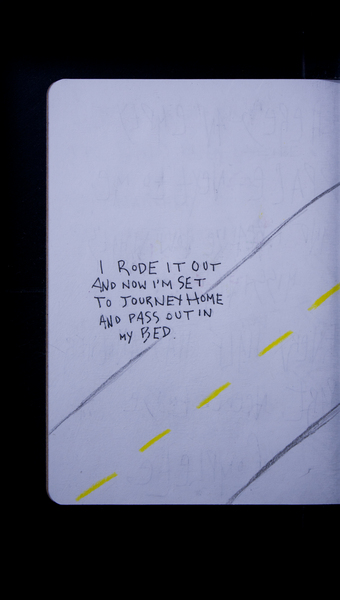 I RODE IT OUT
AND NOW I'M SET
TO JOURNEY HOME
AND PASS OUT IN
MY BED.